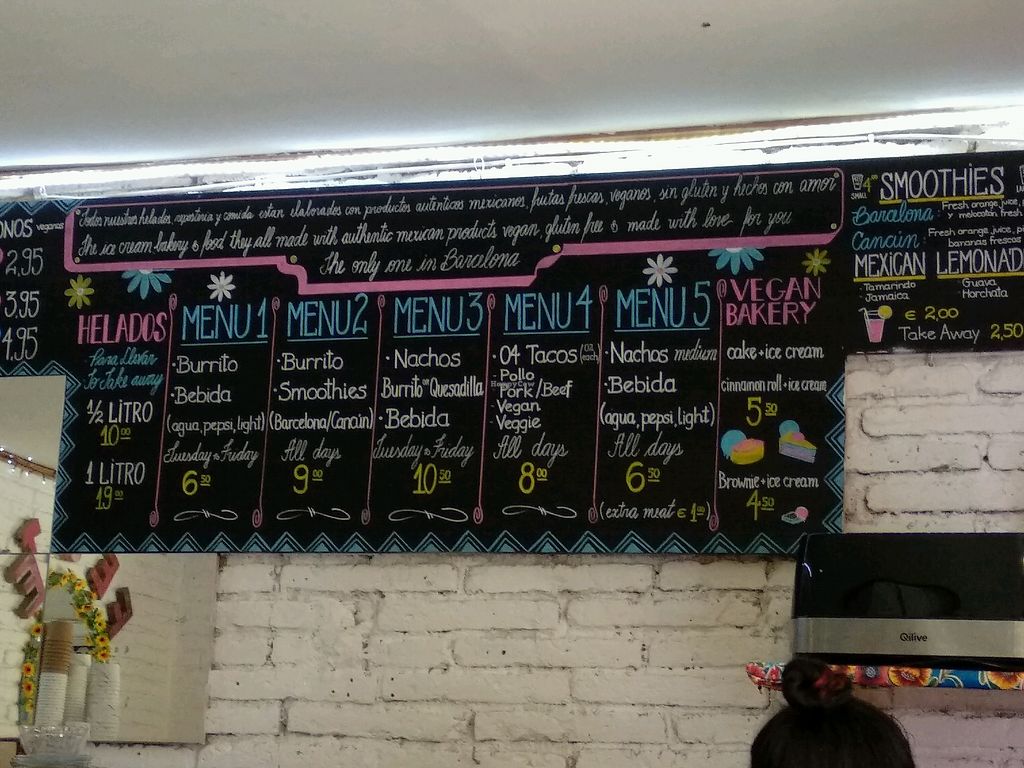 Todos nuestros helados, repostería y comida estan elaborados con productos autenticos mexicanos, frutas frescas, veganos, sin gluten y hechos con amor
The ice cream bakery & food they all made with authentic mexican products vegan, gluten free & made with love for you
The only one in Barcelona
ONOS veganos
2,95
3,95
4,95
HELADOS
Para Llevar
To Take away
½ LITRO
10⁰⁰
1 LITRO
19⁰⁰
MENU 1
· Burrito
· Bebida
(agua, pepsi, light)
Tuesday to Friday
6⁵⁰
MENU 2
· Burrito
· Smoothies
(Barcelona/Cancún)
All days
9⁰⁰
MENU 3
· Nachos
Burrito or Quesadilla
· Bebida
Tuesday to Friday
10⁵⁰
MENU 4
· 04 Tacos (02 each)
· Pollo
· Pork/Beef
· Vegan
· Veggie
All days
8⁰⁰
MENU 5
· Nachos medium
· Bebida
(agua, pepsi, light)
All days
6⁵⁰
(extra meat € 1⁰⁰)
VEGAN
BAKERY
cake + ice cream
cinnamon roll + ice cream
5⁵⁰
Brownie + ice cream
4⁵⁰
SMALL
4⁰⁰
SMOOTHIES
Barcelona: Fresh orange juice,
y melocotón fresh
Cancún: Fresh orange juice, p
bananas frescas
MEXICAN LEMONAD
· Tamarindo
· Jamaica
· Guava
· Horchata
€ 2,00
Take Away 2,50
HappyCow
Qilive